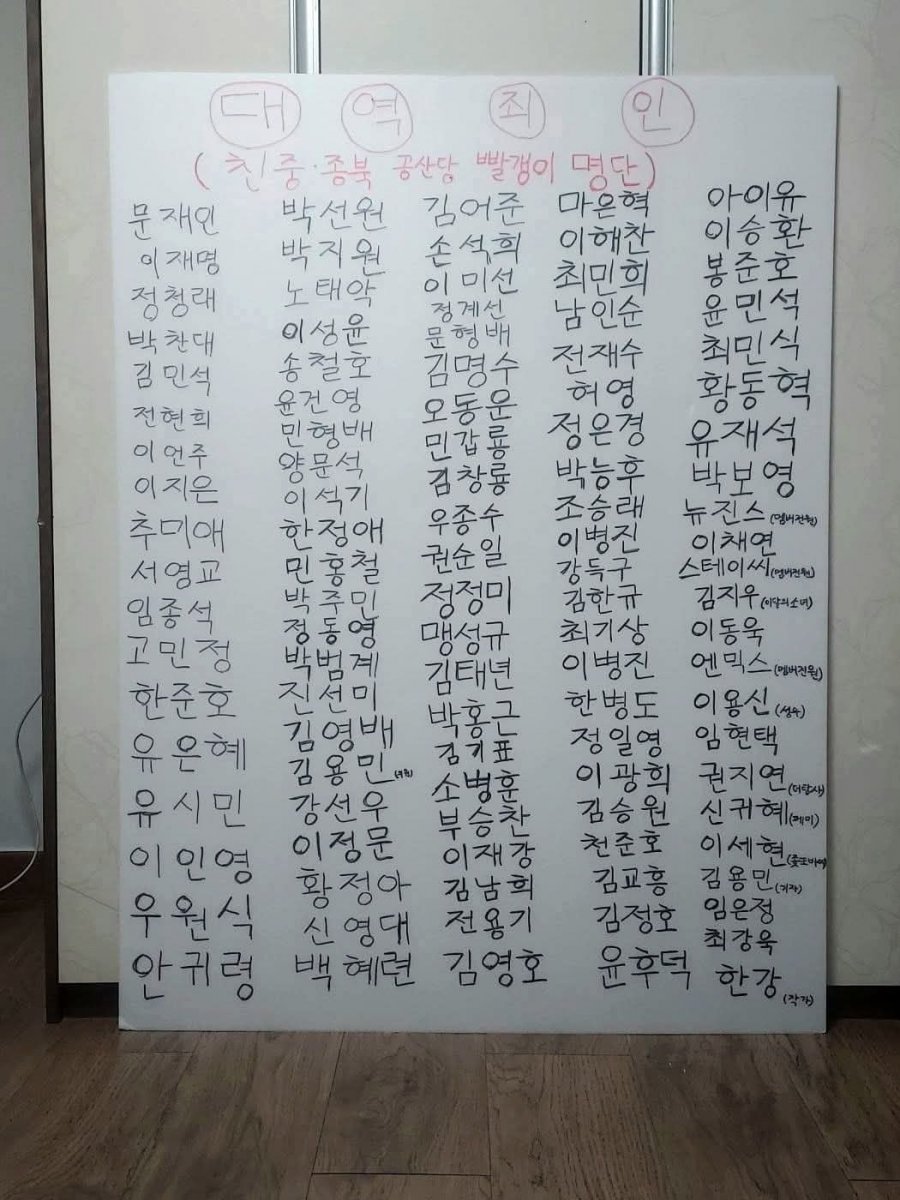 대 역 죄 인
(친중·종북 공산당 빨갱이 명단)
문재인
이재명
정청래
박찬대
김민석
전현희
이언주
이지은
추미애
서영교
임종석
고민정
한준호
유은혜
유시민
이인영
우원식
안귀령
박선원
박지원
노태악
이성윤
송철호
윤건영
민형배
양문석
이석기
한정애
민홍철
박주민
정동영
박범계
진선미
김영배
김용민
강선우
이정문
황정아
신영대
백혜련
김어준
손석희
이미선
정계선
문형배
김명수
오동운
민갑룡
김창룡
우종수
권순일
정정미
맹성규
김태년
박홍근
김기표
소병훈
부승찬
이재강
김남희
전용기
김영호
마은혁
이해찬
최민희
남인순
전재수
허영
정은경
박능후
조승래
이병진
강득구
김한규
최기상
이병진
한병도
정일영
이광희
김승원
천준호
김교흥
김정호
윤후덕
아이유
이승환
봉준호
윤민석
최민식
황동혁
유재석
박보영
뉴진스(멤버전원)
이채연
스테이씨(멤버전원)
김지우(이달의소녀)
이동욱
엔믹스(멤버전원)
이용신(성우)
임현택
권지연(더탐사)
신귀혜
이세현
김용민(기자)
임은정
최강욱
한강(작가)